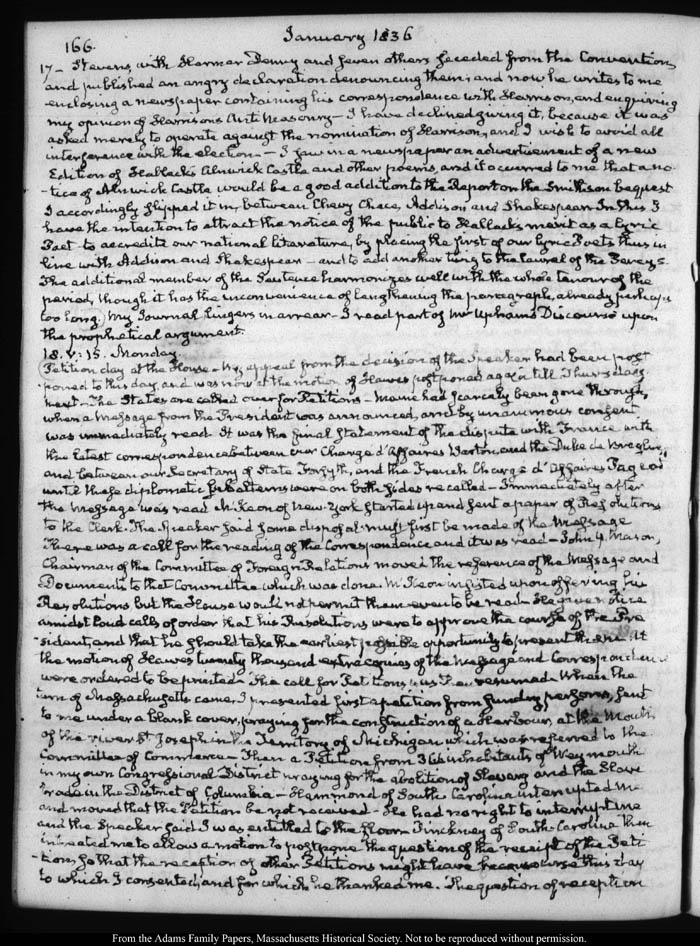 166.
January 1836
17 – Stevens, with Harmar Denny and seven others seceded from the Convention,
and published an angry declaration denouncing them; and now he writes to me
enclosing a newspaper containing his correspondence with Harrison, and enquiring
my opinion of Harrisons Anti Masonry – I have declined giving it, because it was
asked merely to operate against the nomination of Harrison, and I wish to avoid all
interference with the election. – I saw in a newspaper an advertisement of a new
Edition of Halleck's Alnwick Castle and other poems, and it occurred to me that a no-
-tice of Alnwick Castle would be a good addition to the Report on the Smithson bequest
I accordingly slipped it in, between Chevy Chace, Addison and Shakespear. In this I
have the intention to attract the notice of the public to Hallecks merit as a Lyric
Poet – to accredit our national literature, by placing the first of our Lyric Poets thus in
line with Addison and Shakespear – and to add another twig to the laurel of the Percys.
The additional member of the Sentence harmonizes well with the whole tenour of the
period, though it has the inconvenience of lengthening the paragraph, already perhaps
too long. My Journal lingers in arrear – I read part of Mr Upham's Discourse upon
the prophetical argument.
18. V: 15. Monday.
Petition day at the House – My appeal from the decision of the Speaker had been post
poned to this day, and was now at the motion of Hawes postponed again till Thursday
next – The States are called over for Petitions – Maine had scarcely been gone through,
when a Message from the President was announced, and by unanimous consent
was immediately read. It was the final statement of the dispute with France with
the latest correspondence between our Chargé d'Affaires Barton, and the Duke de Broglie,
and between our Secretary of State Forsyth, and the French Chargé d'Affaires Pageot
until these diplomatic subalterns were on both sides recalled – Immediately after
the Message was read McKeon of New-York started up and sent a paper of Resolutions
to the Clerk. The Speaker said some disposal must first be made of the Message
There was a call for the reading of the Correspondence and it was read – John Y. Mason,
Chairman of the Committee of Foreign Relations moved the reference of the Message and
Documents to that Committee which was done. McKeon insisted upon offering his
Resolutions but the House would not permit them even to be read. He gave notice
amidst loud calls of order that his Resolutions were to approve the course of the Pre
-sident, and that he should take the earliest possible opportunity to present them. At
the motion of Hawes twenty thousand extra copies of the Message and Correspondence
were ordered to be printed – The call for Petitions was then resumed – When the
turn of Massachusetts came, I presented first a petition from sundry persons, sent
to me under a blank cover, praying for the construction of a Harbour, at the Mouth
of the river St Joseph in the Territory of Michigan which was referred to the
Committee of Commerce – Then a Petition from 366 inhabitants of Weymouth
in my own Congressional District praying for the abolition of Slavery and the Slave
trade in the District of Columbia – Hammond of South Carolina interrupted me
and moved that the Petition be not received – He had no right to interrupt me
and the Speaker said I was entitled to the floor – Pinckney of South-Carolina then
intreated me to allow a motion to postpone the question of the receipt of the Peti
-tion, so that the reception of other Petitions might have because use this day
to which I consented; and for which he thanked me. The question of reception
From the Adams Family Papers, Massachusetts Historical Society. Not to be reproduced without permission.